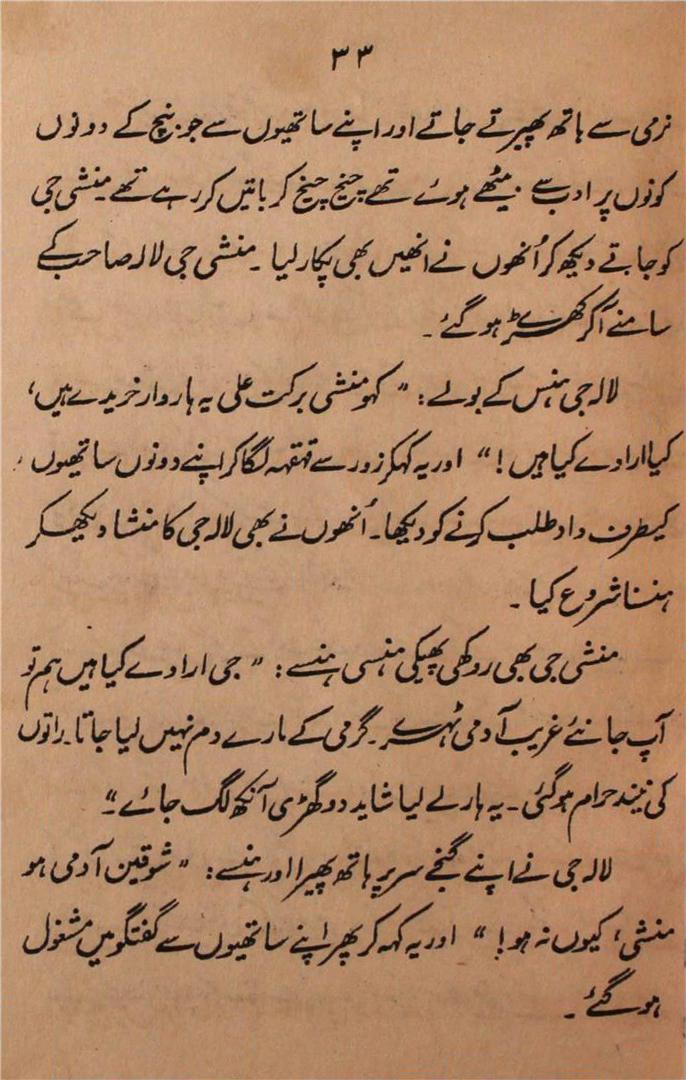 ۳۳
نرمی سے ہاتھ پھیرتے جاتے اور اپنے ساتھیوں سے جو بنچ کے دونوں
کونوں پر ادب سے بیٹھے ہوئے تھے چیخ چیخ کر باتیں کر رہے تھے۔ منشی جی
کو جاتے دیکھ کر اُنھوں نے انھیں بھی پکار لیا۔ منشی جی لالہ صاحب کے
سامنے آکر کھڑے ہو گئے۔
لالہ جی ہنس کے بولے: ”کہو منشی برکت علی یہ ہار وار خریدے ہیں،
کیا ارادے کیا ہیں!“ اور یہ کہکر زور سے قہقہہ لگا کر اپنے دونوں ساتھیوں
کیطرف داد طلب کرنے کو دیکھا۔ اُنھوں نے بھی لالہ جی کا منشا دیکھکر
ہنسنا شروع کیا۔
منشی جی بھی روکھی پھیکی ہنسی ہنسے: ”جی ارادے کیا ہیں ہم تو
آپ جانئے غریب آدمی ٹہرے۔ گرمی کے مارے دم نہیں لیا جاتا۔ راتوں
کی نیند حرام ہو گئی۔ یہ ہار لے لیا شاید دو گھڑی آنکھ لگ جائے۔“
لالہ جی نے اپنے گنجے سر پر ہاتھ پھیرا اور ہنسے: ”شوقین آدمی ہو
منشی، کیوں نہ ہو!“ اور یہ کہہ کر پھر اپنے ساتھیوں سے گفتگو میں مشغول
ہو گئے۔